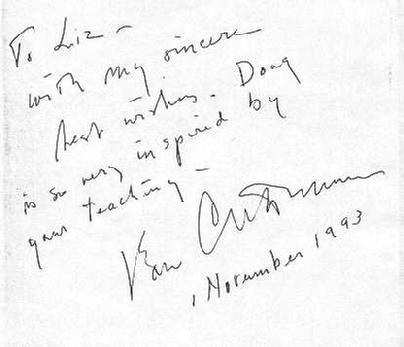 To Liz –
with my sincere
best wishes. Doug
is so very inspired by
your teaching –
1 November 1993